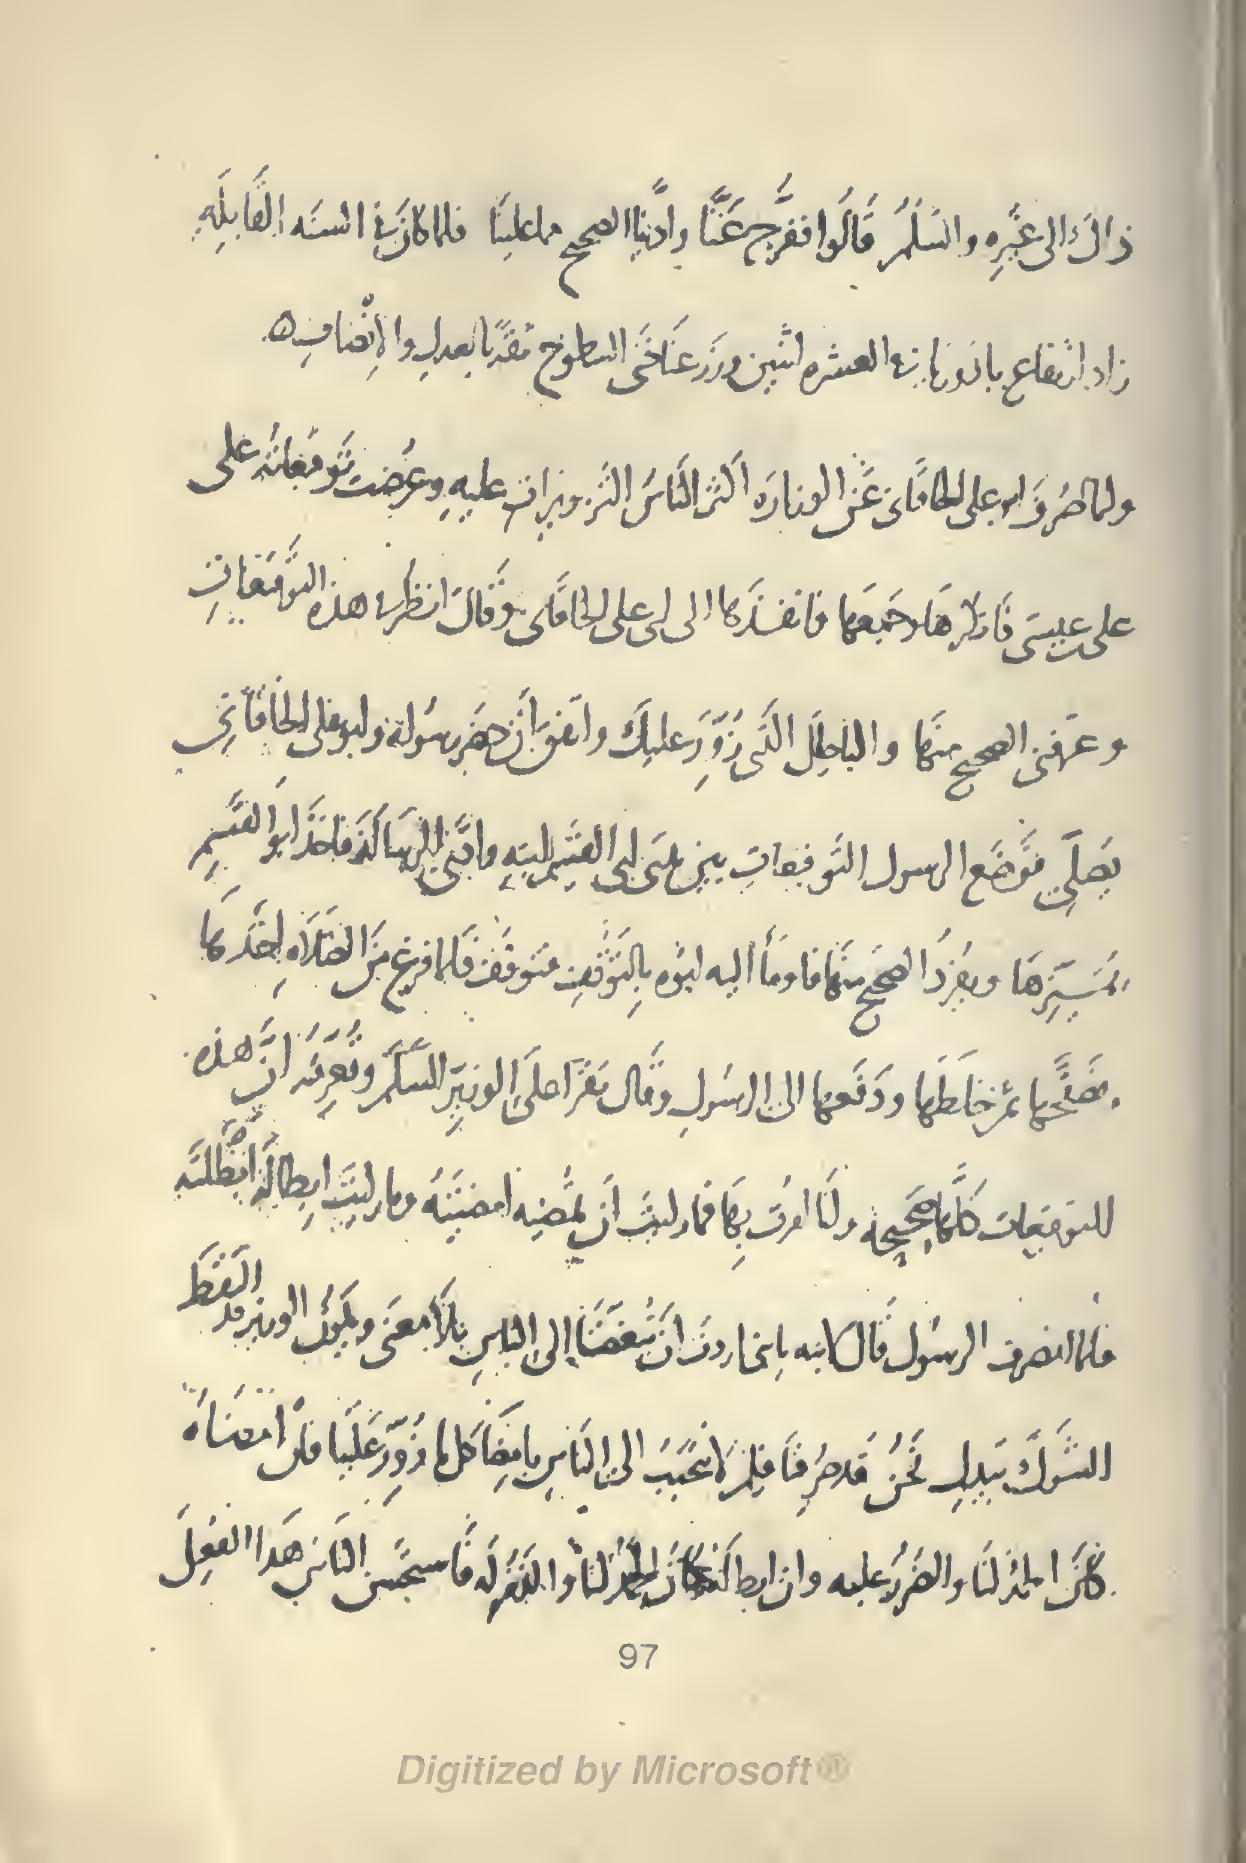 ذاك الى غيره والسلم قالوا ففرج عنا وادينا الصحيح مما علينا فلما كان في السنه القابله
زاد ارتفاع بادوريا في العشره اثنين وزرعنا حتى السطوح ثقةً بالعدل والانصاف ه
ولما صُرِف ابو على الخاقاني عن الوزاره اكثر الناس التزويرات عليه وعرضت توقيعاته على
على بن عيسى فانكرها وجمعها فانفذ بها الى ابى على الخاقانى وقال انظر فى هذه التوقيعات
وعرّفنى الصحيح منها والباطل الذى زُوِّر عليك واتفق ان حضر رسوله وابو على الخاقاني
يصلى فوضع الرسول التوقيعات بين يدى ابى القسم ابنه وادّى الرساله فاخذ ابو القسم
يميزها ويفرد الصحيح منها فاومأ اليه ابوه بالتوقف فتوقف فلما فرغ من الصلاه اخذها
فتصفحها ثم خلطها ودفعها الى الرسول وقال تقرا على الوزير السلم وتعرفه ان هذه
التوقيعات كلها صحيحه وانا امرت بها فما رايت ان تمضيه امضيته وما رايت ابطاله ابطلته
فلما انصرف الرسول قال لابنه يا بنى اردت ان تبغضنا الى الناس بلا معنى ويكون الوزير قد التقط
الشوك بيدك نحن قد صُرفنا فلم لا نتحبب الى الناس بامضا كل ما زُوِّر علينا فان امضاه
كان الحمد لنا والضرر عليه وان ابطاله كان الحمد لنا والذم له فاستحسن الناس هذا الفعل
97
Digitized by Microsoft®